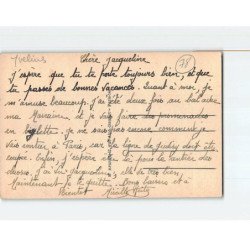 Yvelines
78
Chère Jacqueline
J'espère que tu te porte toujours bien, et que
tu passes de bonnes vacances. Quant à moi, je
m'amuse beaucoup. J'ai été deux fois au bal avec
ma Marraine, et je vais faire des promenades
en bicyclette. Je ne sais pas encore comment je
vais rentrer à Paris, car la ligne de
coupé. Enfin, j'espère pour la rentrée des
classes, J'ai vu Jacqueline, elle va très bien.
Maintenant je te quitte. Bons baisers et à
Bientôt